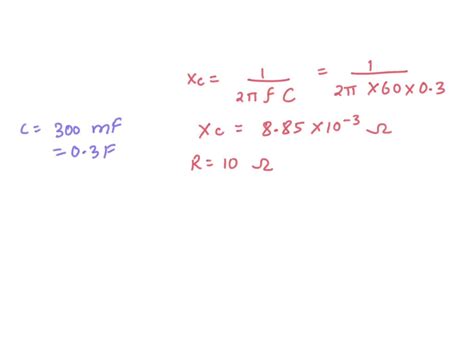 Xc = 1 / 2π f C = 1 / 2π × 60 × 0.3
C = 300 mF
= 0.3F
Xc = 8.85 × 10⁻³ Ω
R = 10 Ω